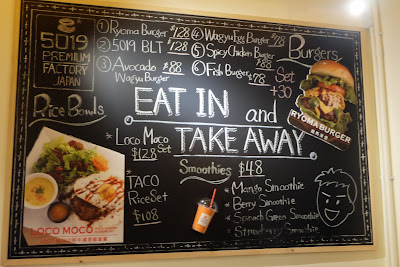 5019
PREMIUM
FACTORY
JAPAN
① Ryoma Burger $128
② 5019 BLT $128
③ Avocado $88
Wagyu Burger
④ Wagyu Egg Burger $78
⑤ Spicy Chicken Burger $88
⑥ Fish Burger $78
Burgers
Set
+30
RYOMA BURGER
Rice Bowls
EAT IN and
TAKE AWAY
* Loco Moco
$128 Set
* TACO
Rice Set
$108
LOCO MOCO
Smoothies $48
* Mango Smoothie
* Berry Smoothie
* Spinach Green Smoothie
* Strawberry Smoothie